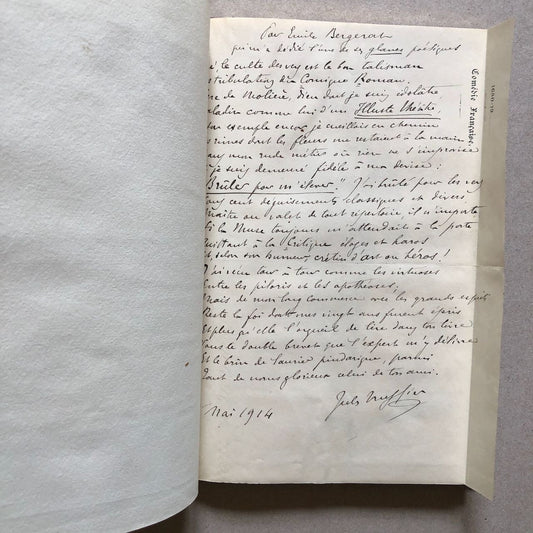 Par Emile Bergerat
qui m'a dédié l'une de ses glanes poétiques
si le culte des vers est le bon talisman
tribulations du Comique Roman,
re de Molière, dieu dont je suis idolâtre
baladin comme lui d'un Illustre Théâtre,
son exemple encor, je cueillais en chemin
rimes dont les fleurs me restaient à la main
dans mon rude métier où rien ne s'improvise
je suis demeuré fidèle à ma devise :
Brûler pour m'élever." J'ai brûlé pour les vers
sous cent déguisements classiques et divers
maître ou valet de tout répertoire, il n'importe
Si la Muse toujours m'attendait à la porte
à la Critique éloges et haros
et, selon son humeur, crétin d'art ou héros !
J'ai vécu tour à tour comme les virtuoses
Entre les piloris et les apothéoses ;
Mais de mon long commerce avec les grands esprits
Reste la foi dont mes vingt ans furent épris
et plus qu'elle l'orgueil de lire dans ton livre
sous le double brevet que l'expert m'y délivre
Et le brin de laurier pindarique, parmi
tant de noms glorieux celui de ton ami.
Mai 1914
Jules Truffier
Comédie Française.
1680-19